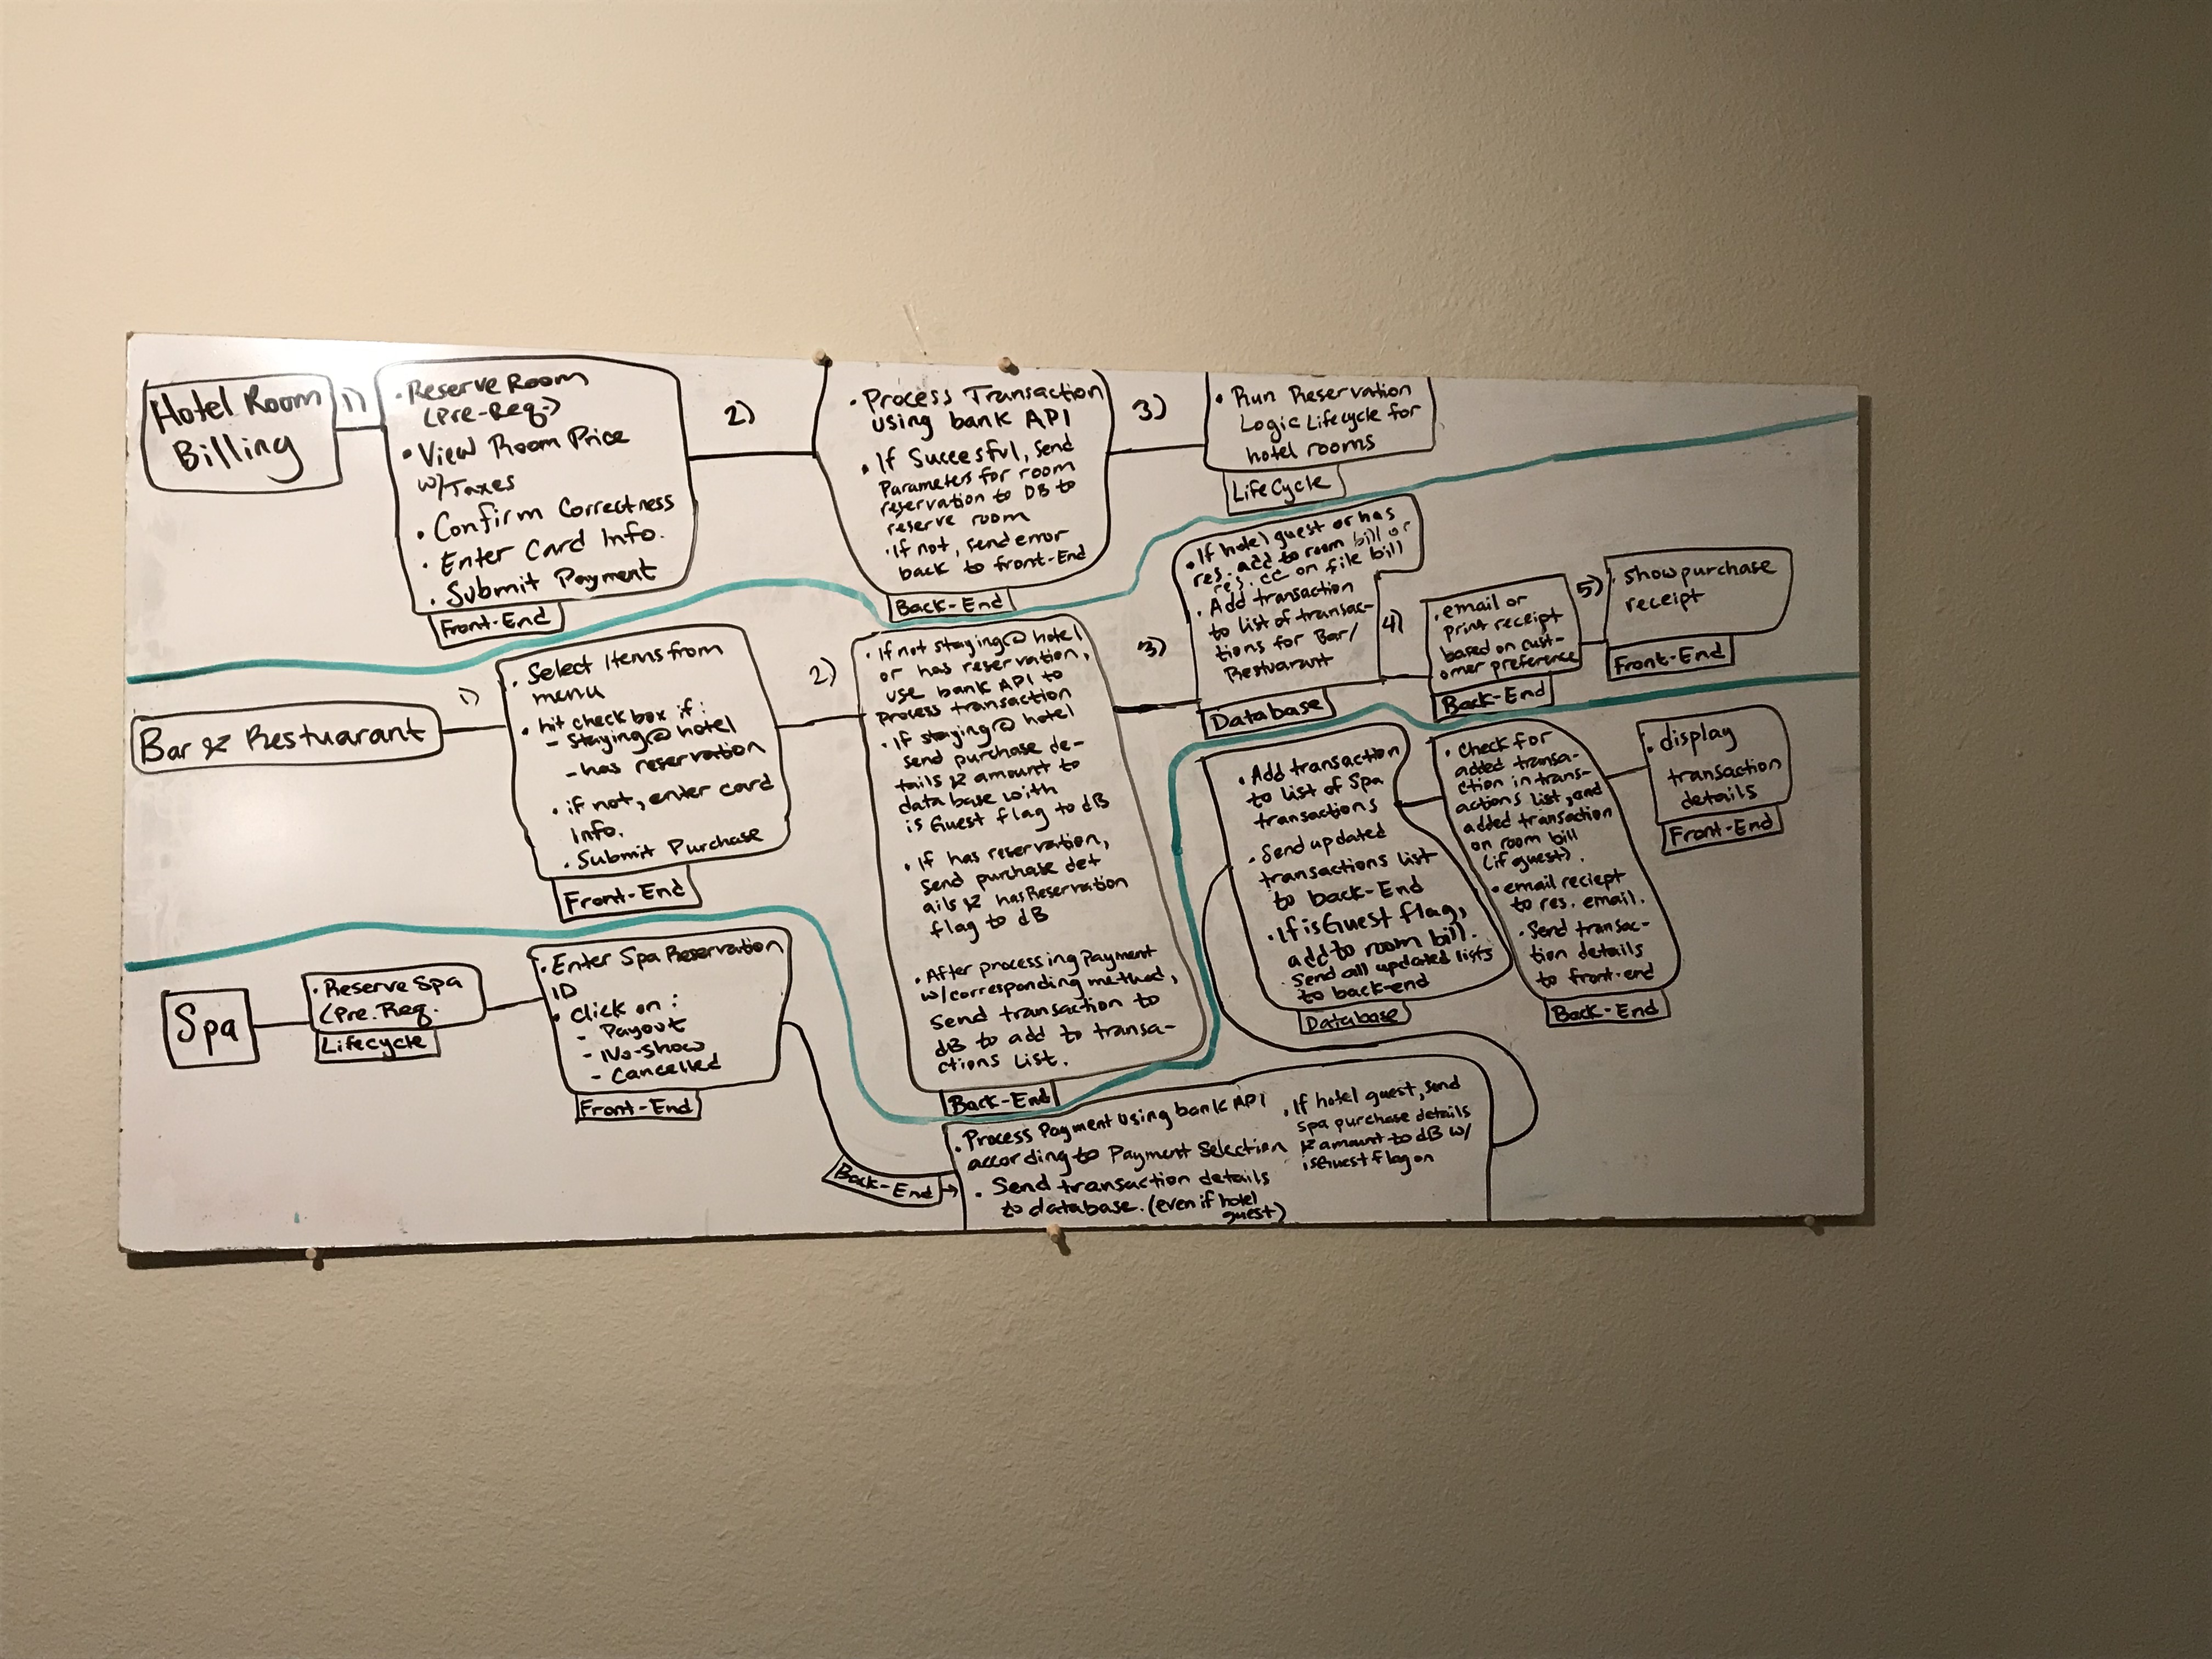 Hotel Room
Billing
1)
• Reserve Room
(Pre-Req.)
• View Room Price
w/Taxes
• Confirm Correctness
• Enter Card Info.
• Submit Payment
Front-End
2)
• Process Transaction
using bank API
• If Succesful, Send
Parameters for room
reservation to DB to
reserve room
• If not, send error
back to front-End
Back-End
3)
• Run Reservation
Logic Lifecycle for
hotel rooms
LifeCycle
Bar & Restuarant
1)
• Select Items from
menu
• hit check box if:
- Staying@hotel
- has reservation
• if not, enter card
Info.
• Submit Purchase
Front-End
2)
• If not staying@hotel
or has reservation,
use bank API to
process transaction
• If staying@hotel
send purchase de-
tails & amount to
database with
isGuest flag to dB
• If has reservation,
send purchase det
ails & hasReservation
flag to dB
• After processing Payment
w/corresponding method,
Send transaction to
dB to add to transa-
ctions List.
Back-End
3)
• If hotel guest or has
res. add to room bill or
res. cc on file bill
• Add transaction
to list of transac-
tions for Bar/
Restuarant
Database
4)
• email or
print receipt
based on cust-
omer preference
Back-End
5)
• show purchase
receipt
Front-End
Spa
• Reserve Spa
(Pre. Req.
Lifecycle
• Enter Spa Reservation
ID
• Click on:
- Payout
- No-Show
- Cancelled
Front-End
Back-End
• Process Payment using bank API
according to Payment Selection
• Send transaction details
to database. (even if hotel
guest)
• If hotel guest, send
spa purchase details
& amount to dB w/
isGuest flag on
• Add transaction
to list of Spa
transactions
• Send updated
transactions list
to back-End
• If isGuest flag,
add to room bill.
• Send all updated lists
to back-end
Database
• Check for
added transa-
ction in trans-
actions list, and
added transaction
on room bill
(if guest).
• email reciept
to res. email.
• Send transac-
tion details
to front-end
Back-End
• display
transaction
details
Front-End